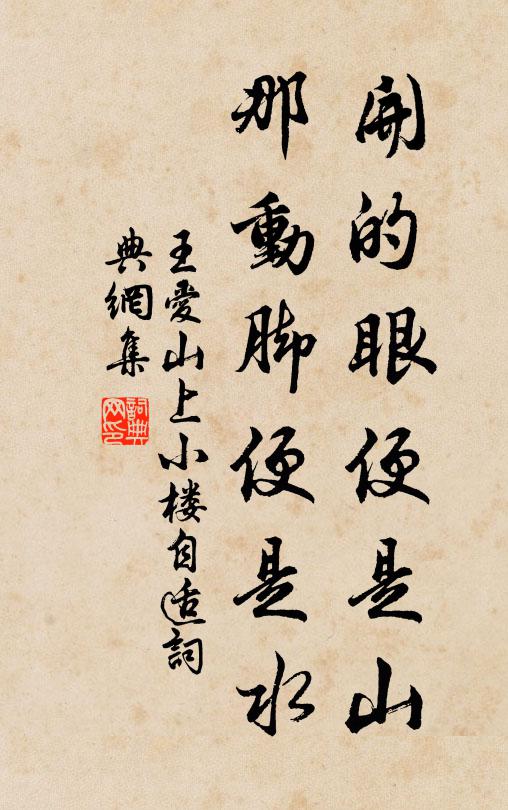 開的眼便是山
那動脚便是水
王愛山上小楼自适詞
典網集
詞典網印